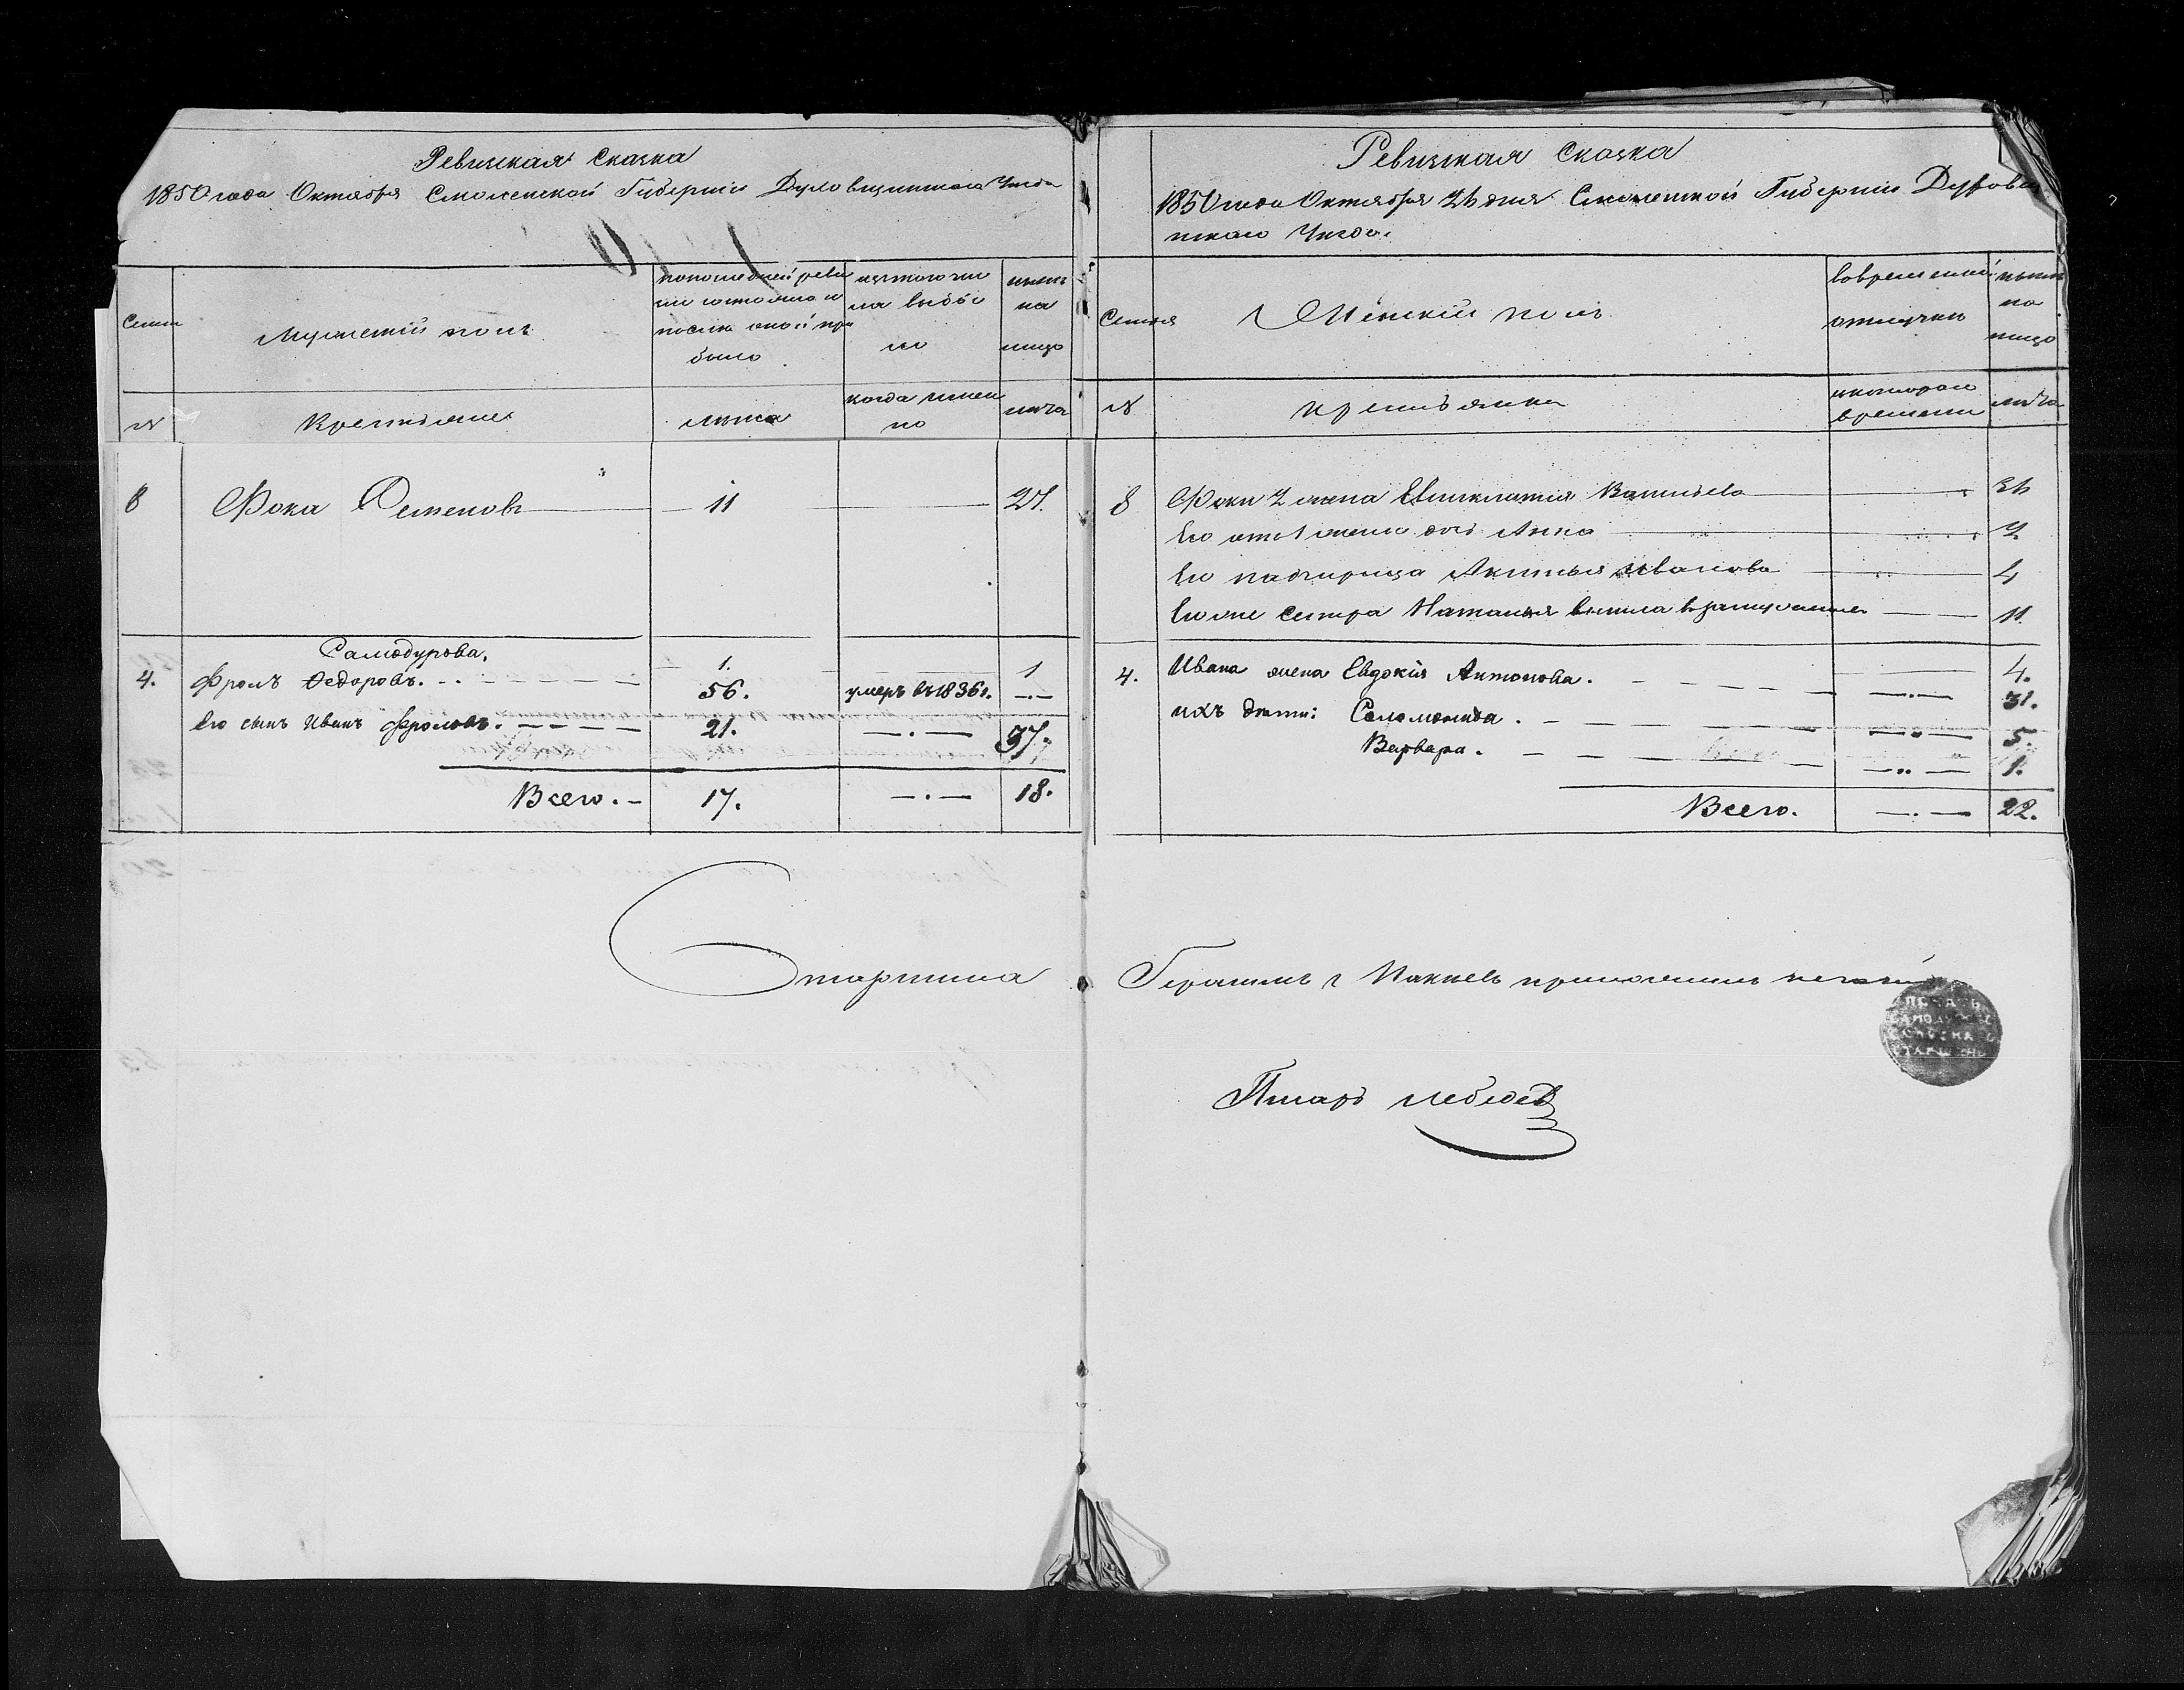 Ревизская Сказка
1850 года Октября Смоленской Губерніи Духовщинскаго Уезда
Семьи
Мужескій полъ
по последней реви
зіи состояло и
после оной при
было
изъ того чис
ла выбы
ло
ныне
на
лицо
№
Крестьяне
лета
когда имен
но
лета
8
Фока Семеновъ
11
27.
Самодурова.
1.
1
4.
Фролъ Федоровъ.
56.
умеръ въ 1836 г.
Его сынъ Иванъ Фроловъ.
21.
37.
Всего.
17.
18.
Старшина
Ревизская Сказка
1850 года Октября 26 дня Смоленской Губерніи Духовщи
нскаго Уезда.
Семья
Женскій полъ
во временной
отлучке
ныне
на
лицо
№
крестьянки
с котораго
времени
лета
8
Фоки 2 жена Васильева
36
Его отъ 1 жены дочь Анна
7
Его падчерица Аксинья Иванова
4
Его же сестра Наталья вышла в замужество
11
4.
4.
Ивана жена Евдокія Антонова.
31.
ихъ дети: Соломонида.
5.
Варвара.
1.
Всего.
22.
Герасимъ приложилъ печать
ПЕЧАТЬ
СТАРШИНЫ
Писарь Лебедев